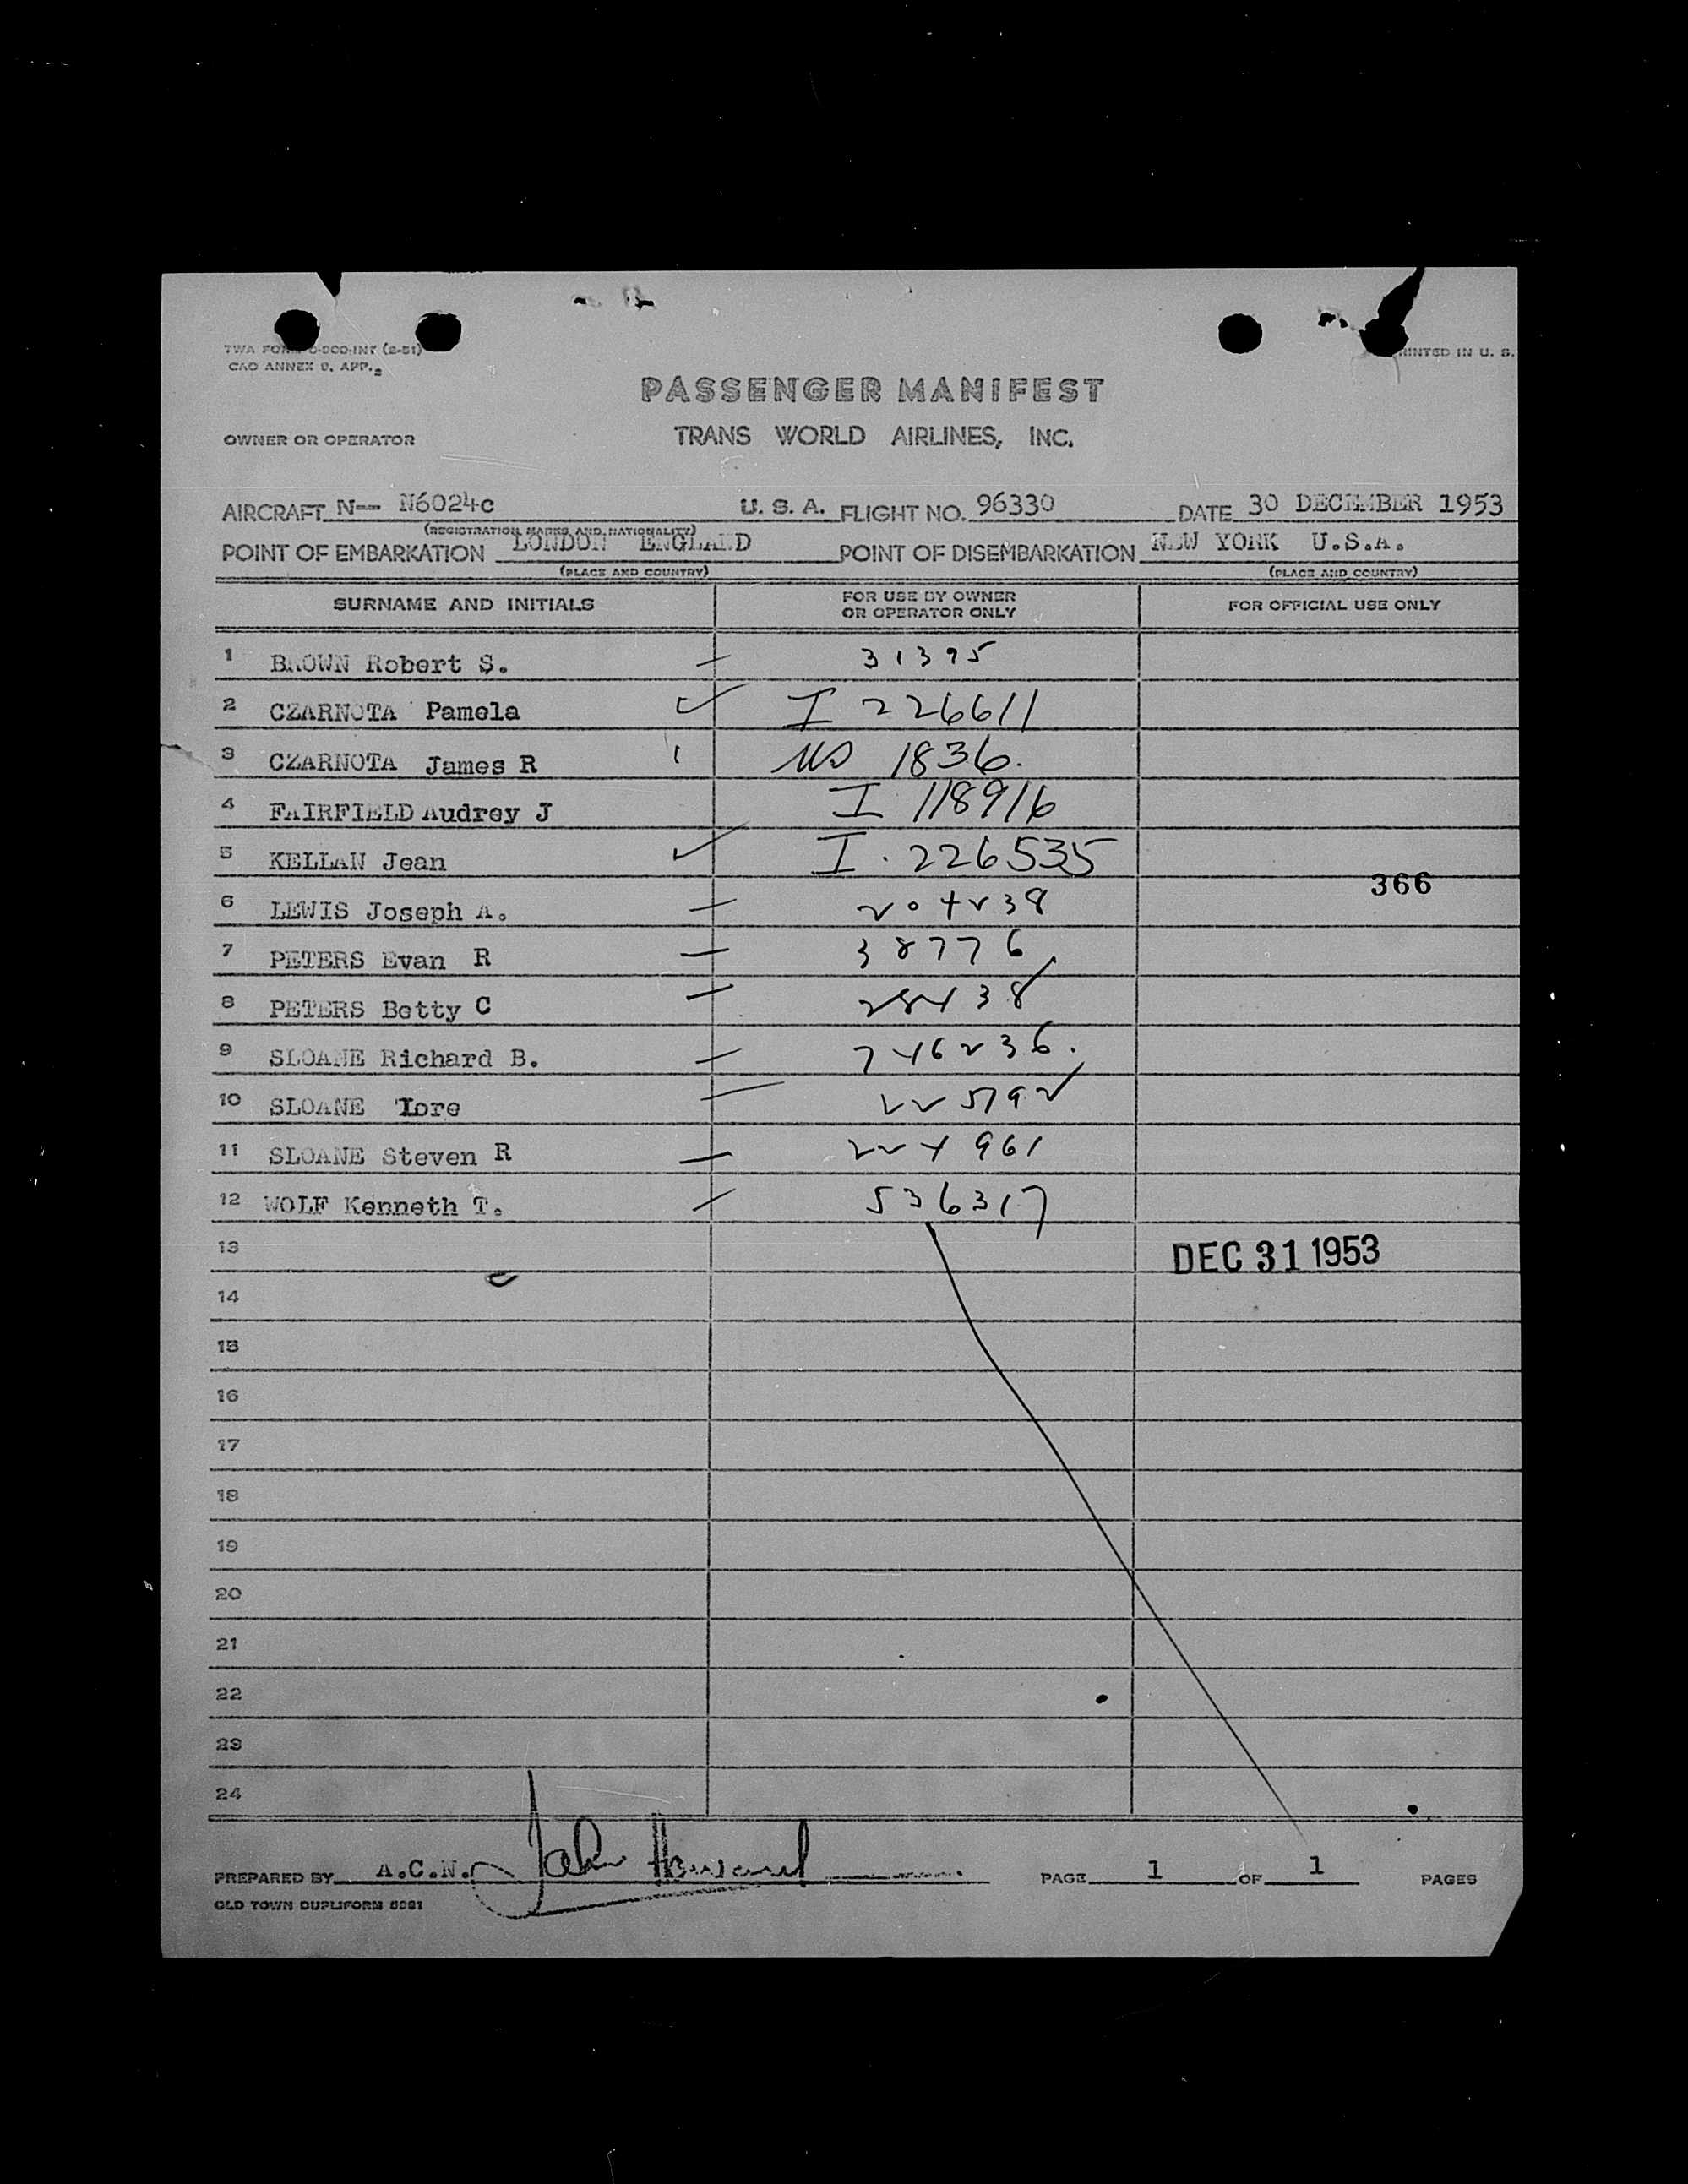 TWA FORM
CAO ANNEX 9, APP. 2
PRINTED IN U. S.
PASSENGER MANIFEST
OWNER OR OPERATOR TRANS WORLD AIRLINES, INC.
AIRCRAFT N-- N6024c U. S. A. FLIGHT NO. 96330 DATE 30 DECEMBER 1953
(REGISTRATION MARKS AND NATIONALITY)
POINT OF EMBARKATION LONDON ENGLAND POINT OF DISEMBARKATION NEW YORK U.S.A.
(PLACE AND COUNTRY) (PLACE AND COUNTRY)
SURNAME AND INITIALS FOR USE BY OWNER OR OPERATOR ONLY FOR OFFICIAL USE ONLY
1 BROWN Robert S. 31395
2 CZARNOTA Pamela I 226611
3 CZARNOTA James R US 1836.
4 FAIRFIELD Audrey J I 118916
5 KELLAN Jean I. 226535
366
6 LEWIS Joseph A. 204238
7 PETERS Evan R 38776
8 PETERS Betty C 28438
9 SLOANE Richard B. 746236.
10 SLOANE Lore 225792
11 SLOANE Steven R 224961
12 WOLF Kenneth T. 536317
13 DEC 31 1953
14
15
16
17
18
19
20
21
22
23
24
PREPARED BY A.C.N. John Howard PAGE 1 OF 1 PAGES
OLD TOWN DUPLIFORM